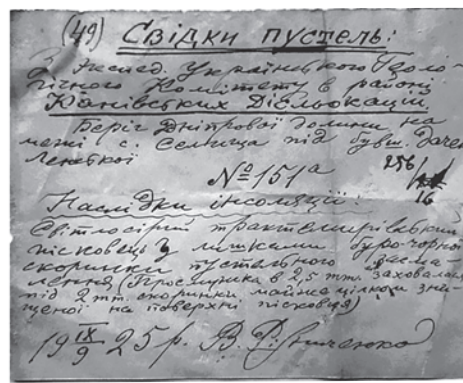 (49) Свідки пустель:
З Экспед. Українського Геоло-
гічного Комітету в районі
Канівських Дісльокацій.
Беріг Дніпрової долини на
межі с. Селища під бувш.
№ 151а 256/16
Наслідки інсоляції:
Світлосірий трактемирівський
пісковець з лишками буро-чорної
скоринки пустельного
(Прослушка в 2,5 тт. заховалася
під 2 тт. скоринки майже цілком зни-
щеної на поверхні пісковця)
19 IX/9 25 р. В. Різниченко